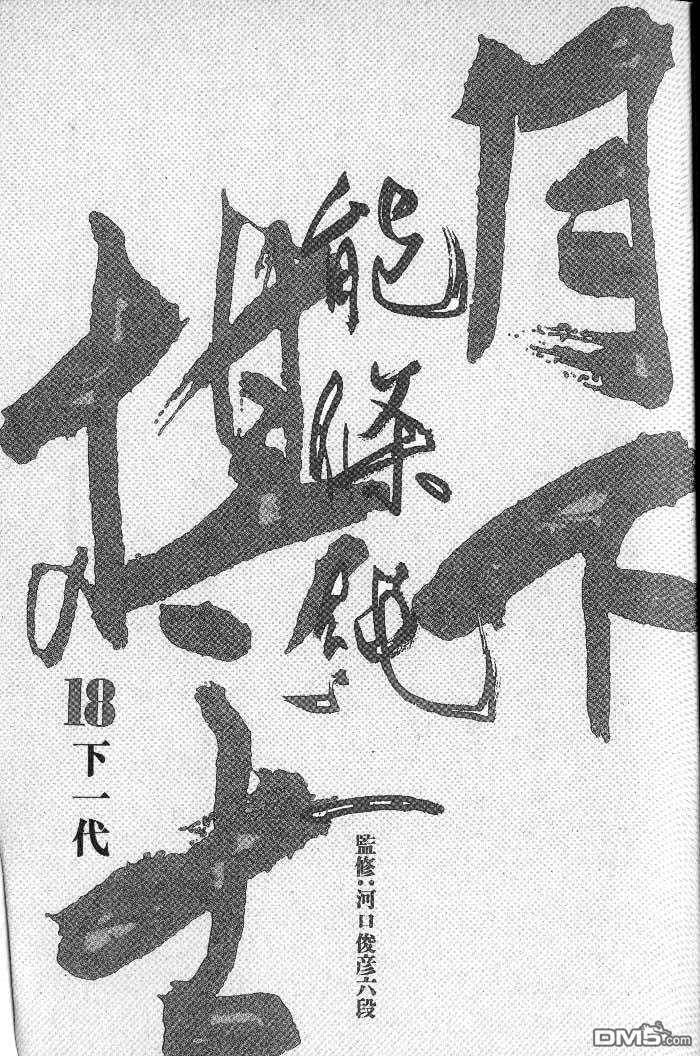 月下
棋士
能條純一
18
下一代
監修:河口俊彦六段
DM5.com